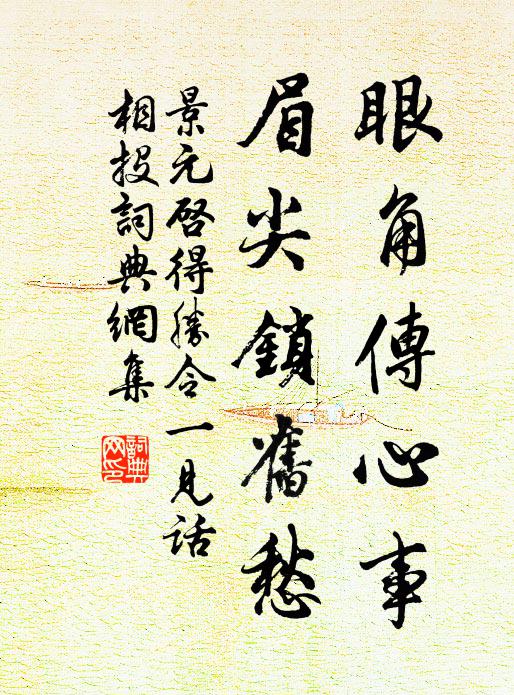 眼角傳心事
眉尖鎖舊愁
景元啓得勝令一見話
相投詞典網集
詞典
网印